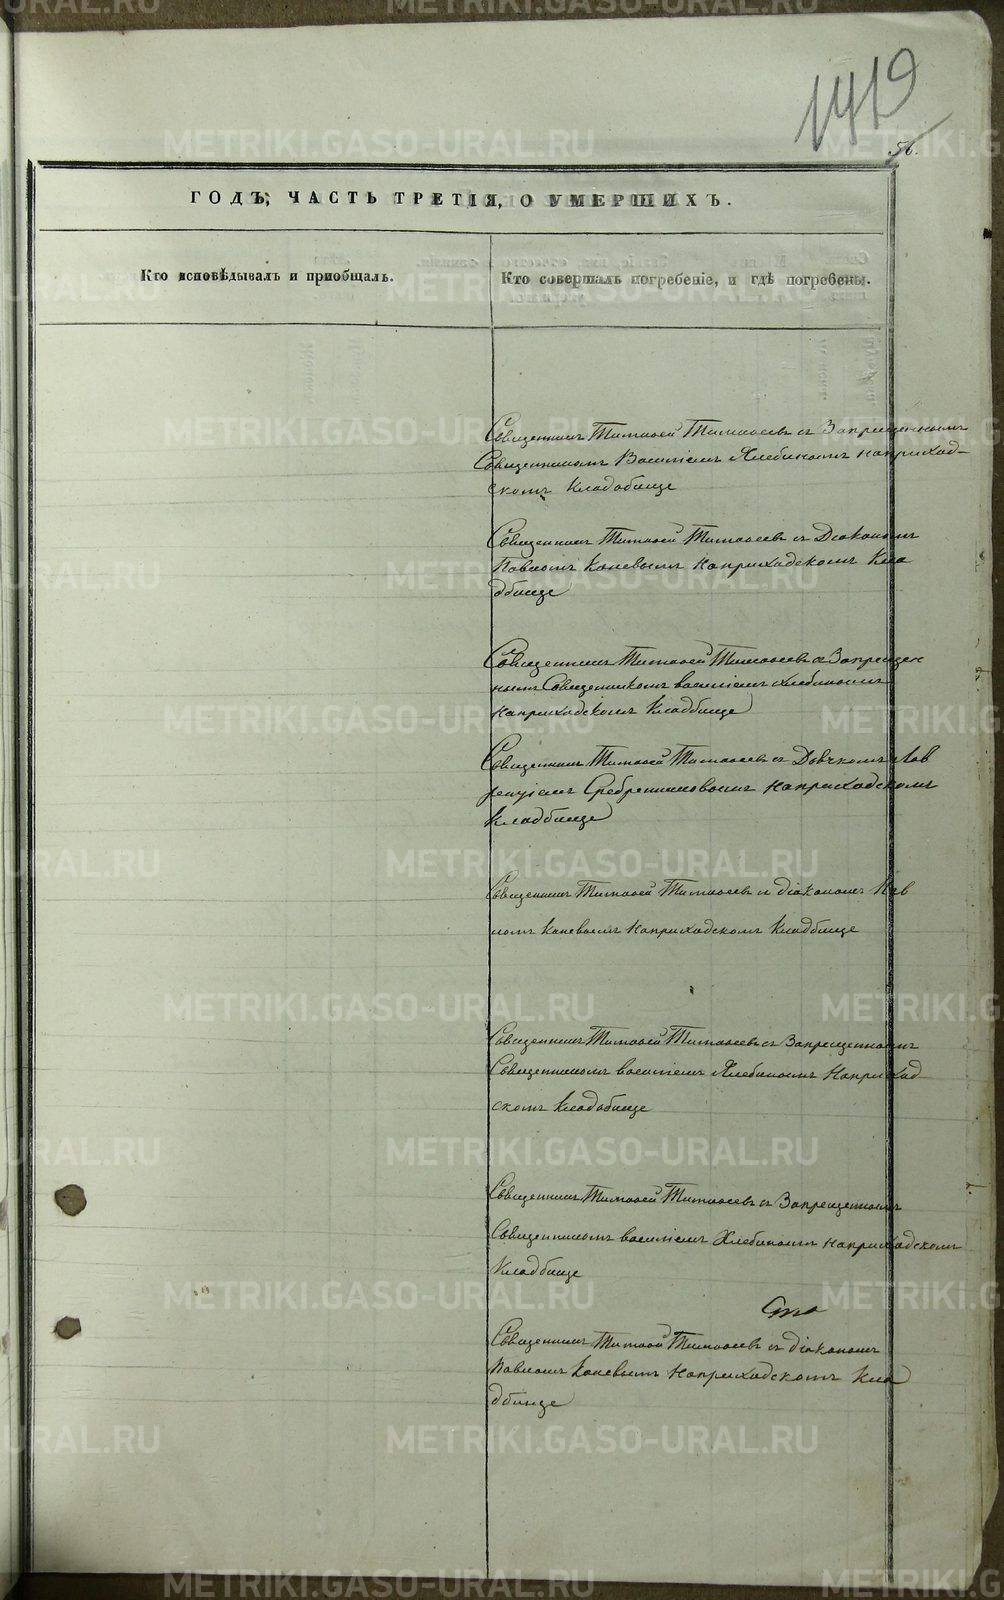 1419
56.
ГОДЪ, ЧАСТЬ ТРЕТІЯ, О УМЕРШИХЪ.
Кто исповѣдывалъ и пріобщалъ.
Кто совершалъ погребеніе, и гдѣ погребены.
Священникъ Тимофей Тимофеевъ съ Запрещеннымъ
Священникомъ Василіемъ Хлебинымъ наприход-
скомъ Кладбище
Священникъ Тимофей Тимофеевъ съ Діакономъ
Павломъ Каневымъ наприходскомъ Кла
дбище
Священникъ Тимофей Тимофеевъ с Запрещен
нымъ Священникомъ василіемъ хлебинымъ
наприходскомъ Кладбище
Священникъ Тимофей Тимофеевъ съ Дьячкомъ Лав
рентіемъ Сребренниковымъ наприходскомъ
Кладбище
Священникъ Тимофей Тимофеевъ съ діакономъ Пав
ломъ Каневымъ наприходскомъ Кладбище
Священникъ Тимофей Тимофеевъ съ Запрещеннымъ
Священникомъ василіемъ Хлебинымъ наприход
скомъ Кладбище
Священникъ Тимофей Тимофеевъ съ Запрещеннымъ
Священникомъ василіемъ Хлебинымъ наприходскомъ
Кладбище
Священникъ Тимофей Тимофеевъ съ діакономъ
Павломъ Каневымъ наприходскомъ Кла
дбище
METRIKI.GASO-URAL.RU